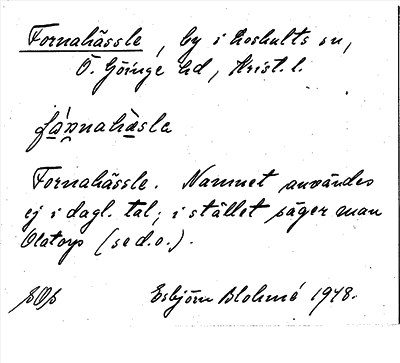 Fornahässle, by i Loshults sn,
Ö. Göinge hd, Krist. l.
fånnahäsla
Fornahässle. Namnet användes
ej i dagl. tal; i stället säger man
Olatorp (se d.o.).
Esbjörn Blohmé 1948.